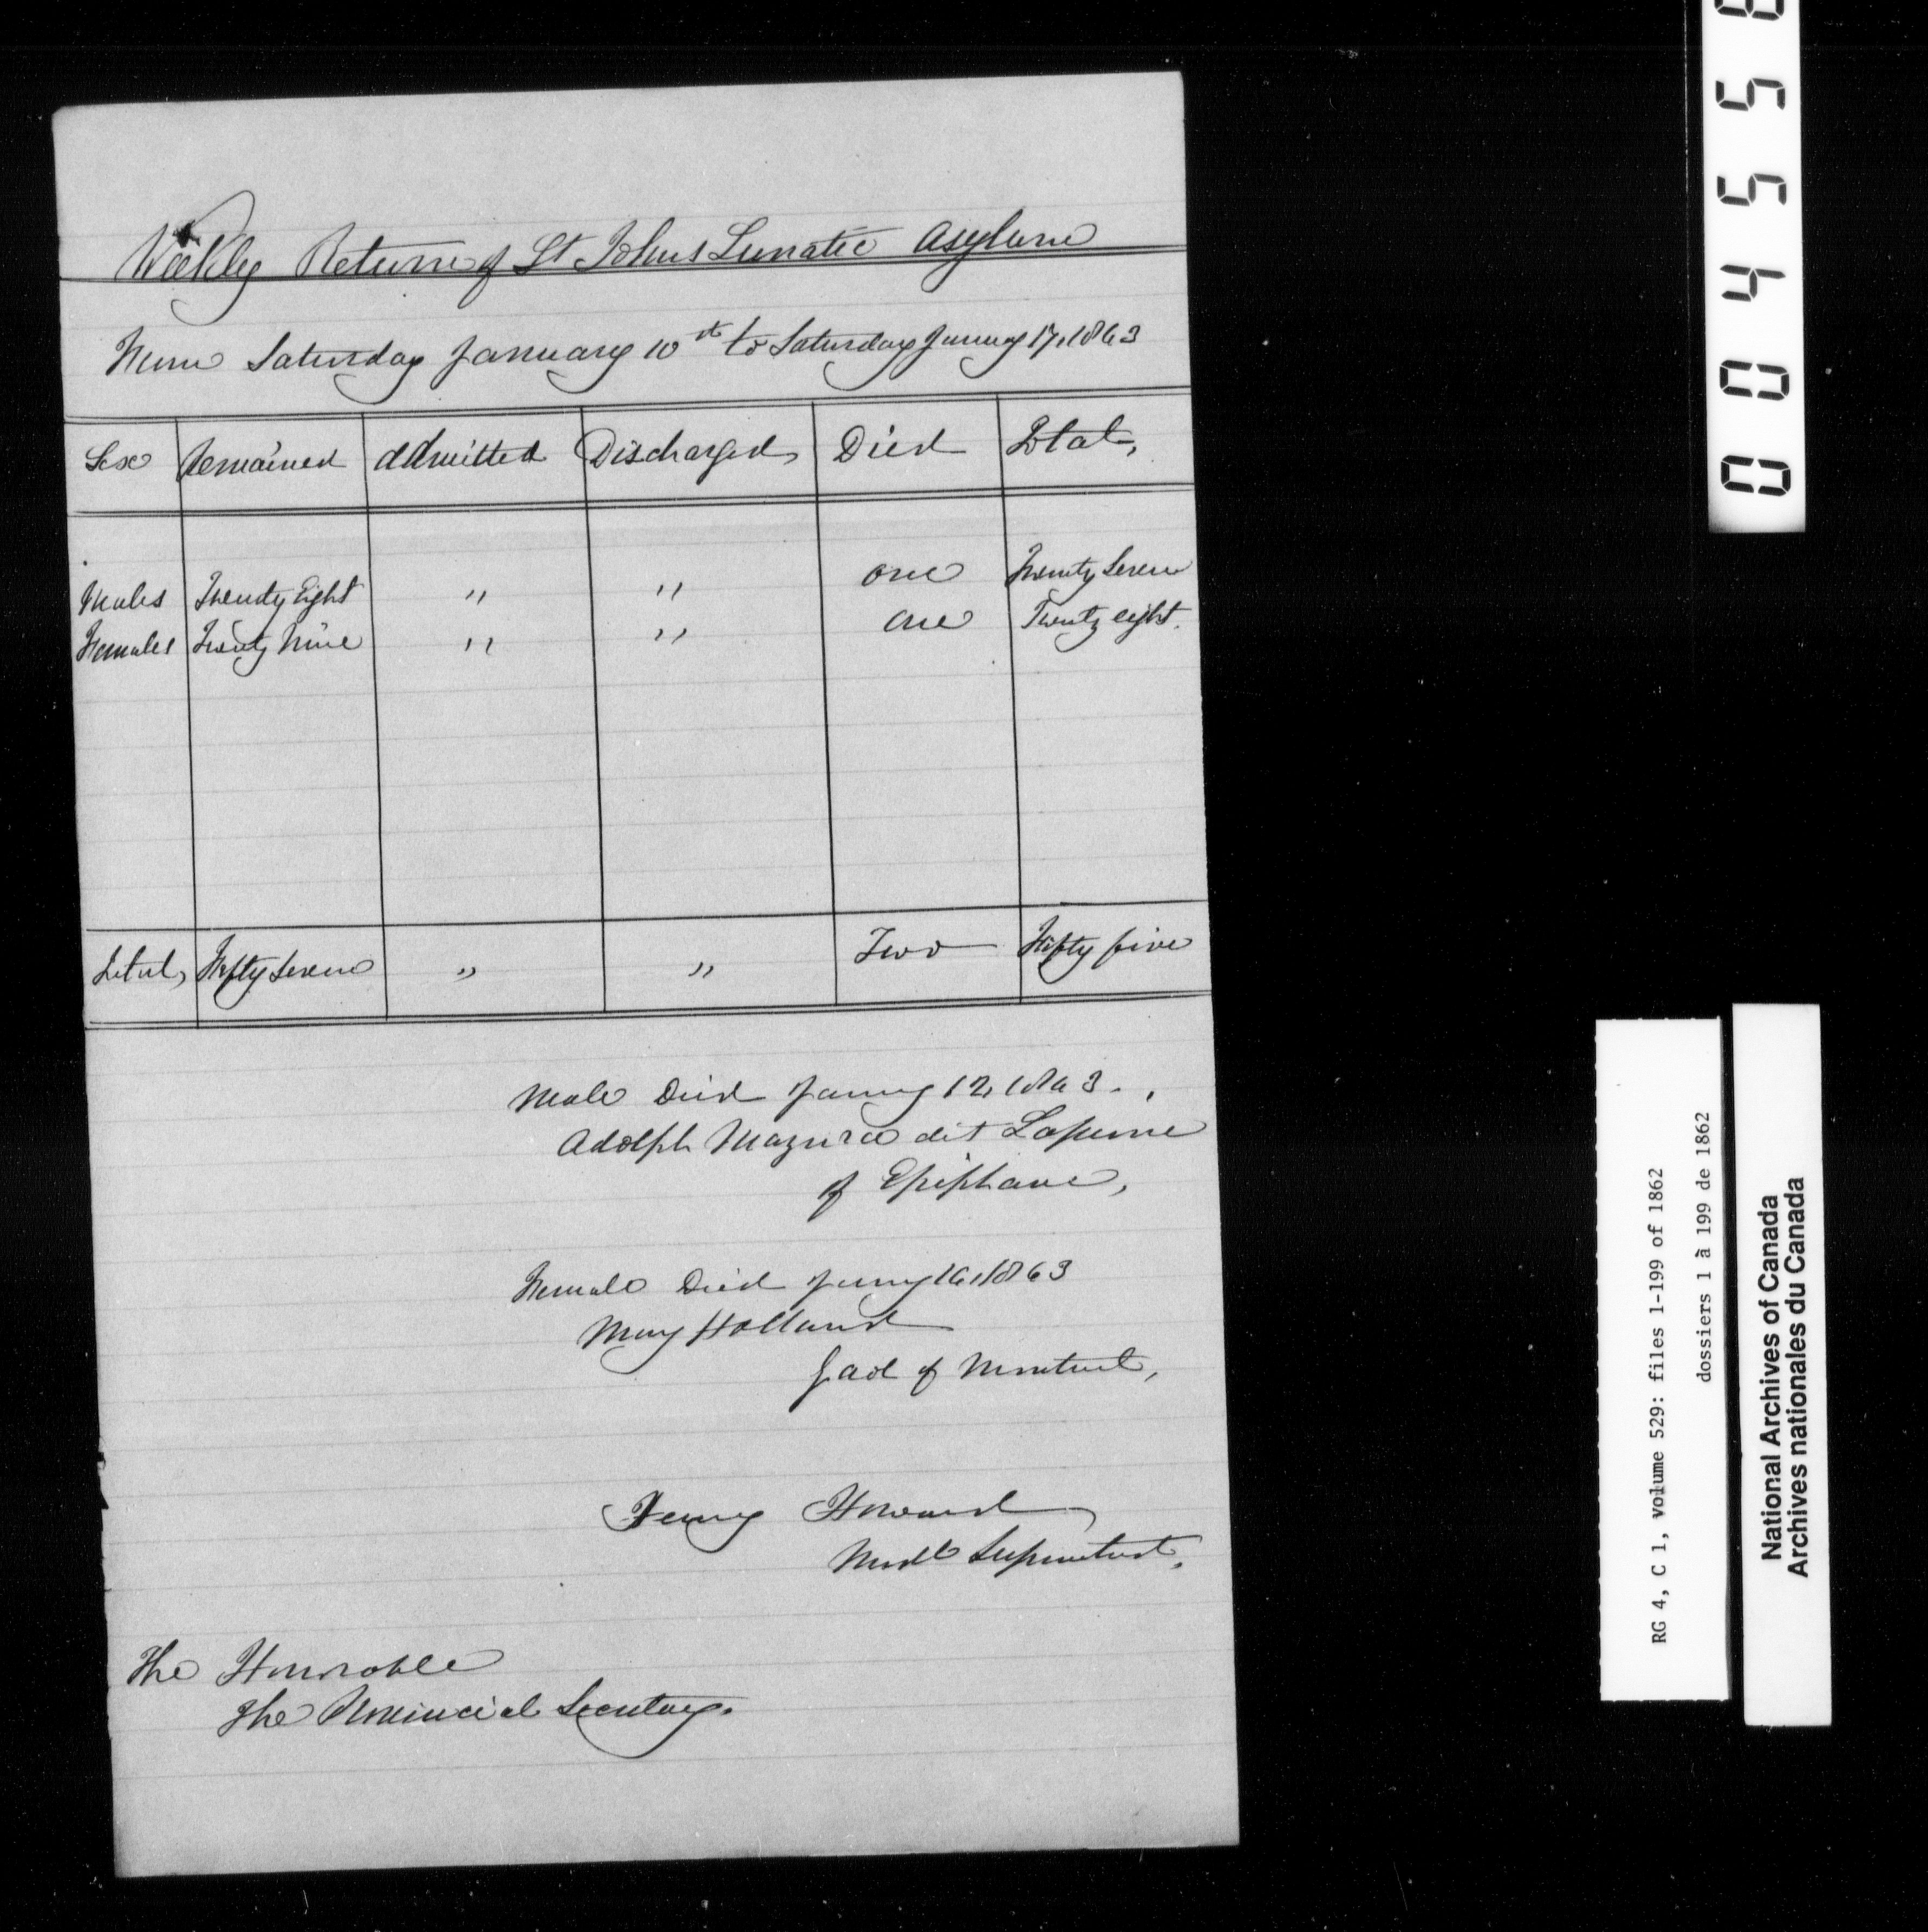 Weekly Return of St Johns Lunatic Asylum
From Saturday January 10th to Saturday January 17, 1863
Sex Remained Admitted Discharged Died Total,
Males Twenty Eight " " one Twenty Seven
Females Twenty Nine " " one Twenty eight.
Total, Fifty Seven " " Two Fifty five
Male Died January 12, 1863.
Adolph Mazurie dit Lapierre
of Epiphane,
Female Died January 16, 1863
Mary Holland
Gaol of Montreal,
Henry Howard
Medl Superintendt.
The Honorable
The Provincial Secretary.
004558
RG 4, C 1, volume 529: files 1-199 of 1862
dossiers 1 à 199 de 1862
National Archives of Canada
Archives nationales du Canada